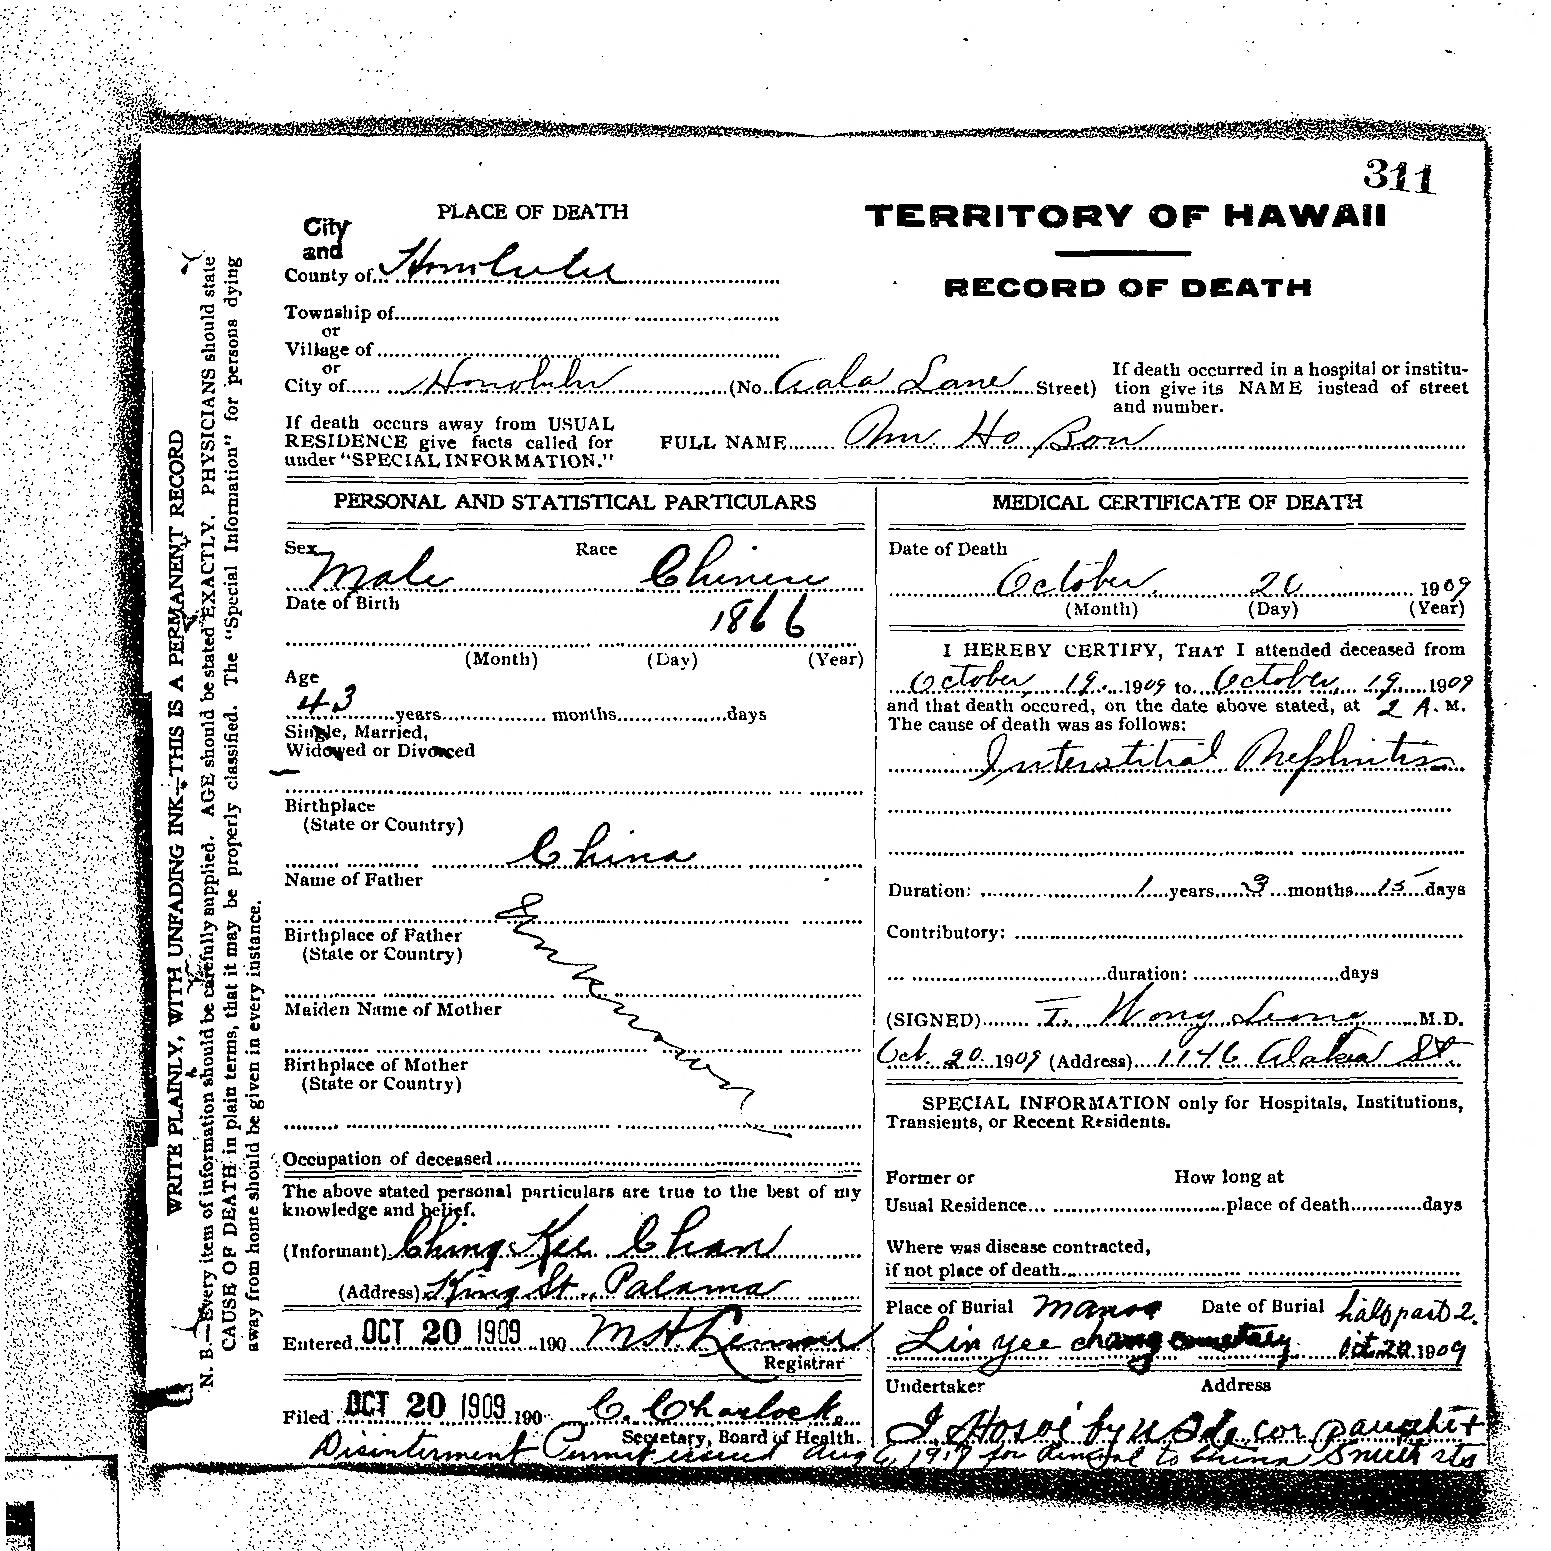 311
PLACE OF DEATH
TERRITORY OF HAWAII
City
and
County of Honolulu
RECORD OF DEATH
Township of
or
Village of
or
City of Honolulu (No. Aala Lane Street)
If death occurred in a hospital or institu-
tion give its NAME instead of street
and number.
If death occurs away from USUAL
RESIDENCE give facts called for
under "SPECIAL INFORMATION."
FULL NAME Ho
PERSONAL AND STATISTICAL PARTICULARS
Sex Race
Male Chinese
Date of Birth
1866
(Month) (Day) (Year)
Age
43 years months days
Single, Married,
Widowed or Divorced
Birthplace
(State or Country)
China
Name of Father
Birthplace of Father
(State or Country)
Unknown
Maiden Name of Mother
Birthplace of Mother
(State or Country)
Occupation of deceased
The above stated personal particulars are true to the best of my
knowledge and belief.
(Informant) Ching Kee Chan
(Address) King St., Palama
Entered OCT 20 1909 190
Registrar
Filed OCT 20 1909 190 C. Charlock
Secretary, Board of Health.
MEDICAL CERTIFICATE OF DEATH
Date of Death
October 20 1909
(Month) (Day) (Year)
I HEREBY CERTIFY, THAT I attended deceased from
October 19 1909 to October 19 1909
and that death occured, on the date above stated, at 2 A. M.
The cause of death was as follows:
Interstitial Nephritis
Duration: 1 years 3 months 15 days
Contributory:
duration: days
(SIGNED) Wong Leong M.D.
Oct. 20 1909 (Address) 1146 Alakea St.
SPECIAL INFORMATION only for Hospitals, Institutions,
Transients, or Recent Residents.
Former or How long at
Usual Residence place of death days
Where was disease contracted,
if not place of death
Place of Burial Manoa Date of Burial half past 2.
Lin yee chang cemetery Oct. 20 1909
Undertaker Address
cor
Disinterment Permit issued Aug 1919 for Removal to China Smith sts
WRITE PLAINLY, WITH UNFADING INK—THIS IS A PERMANENT RECORD
N. B.—Every item of information should be carefully supplied. AGE should be stated EXACTLY. PHYSICIANS should state
CAUSE OF DEATH in plain terms, that it may be properly classified. The "Special Information" for persons dying
away from home should be given in every instance.